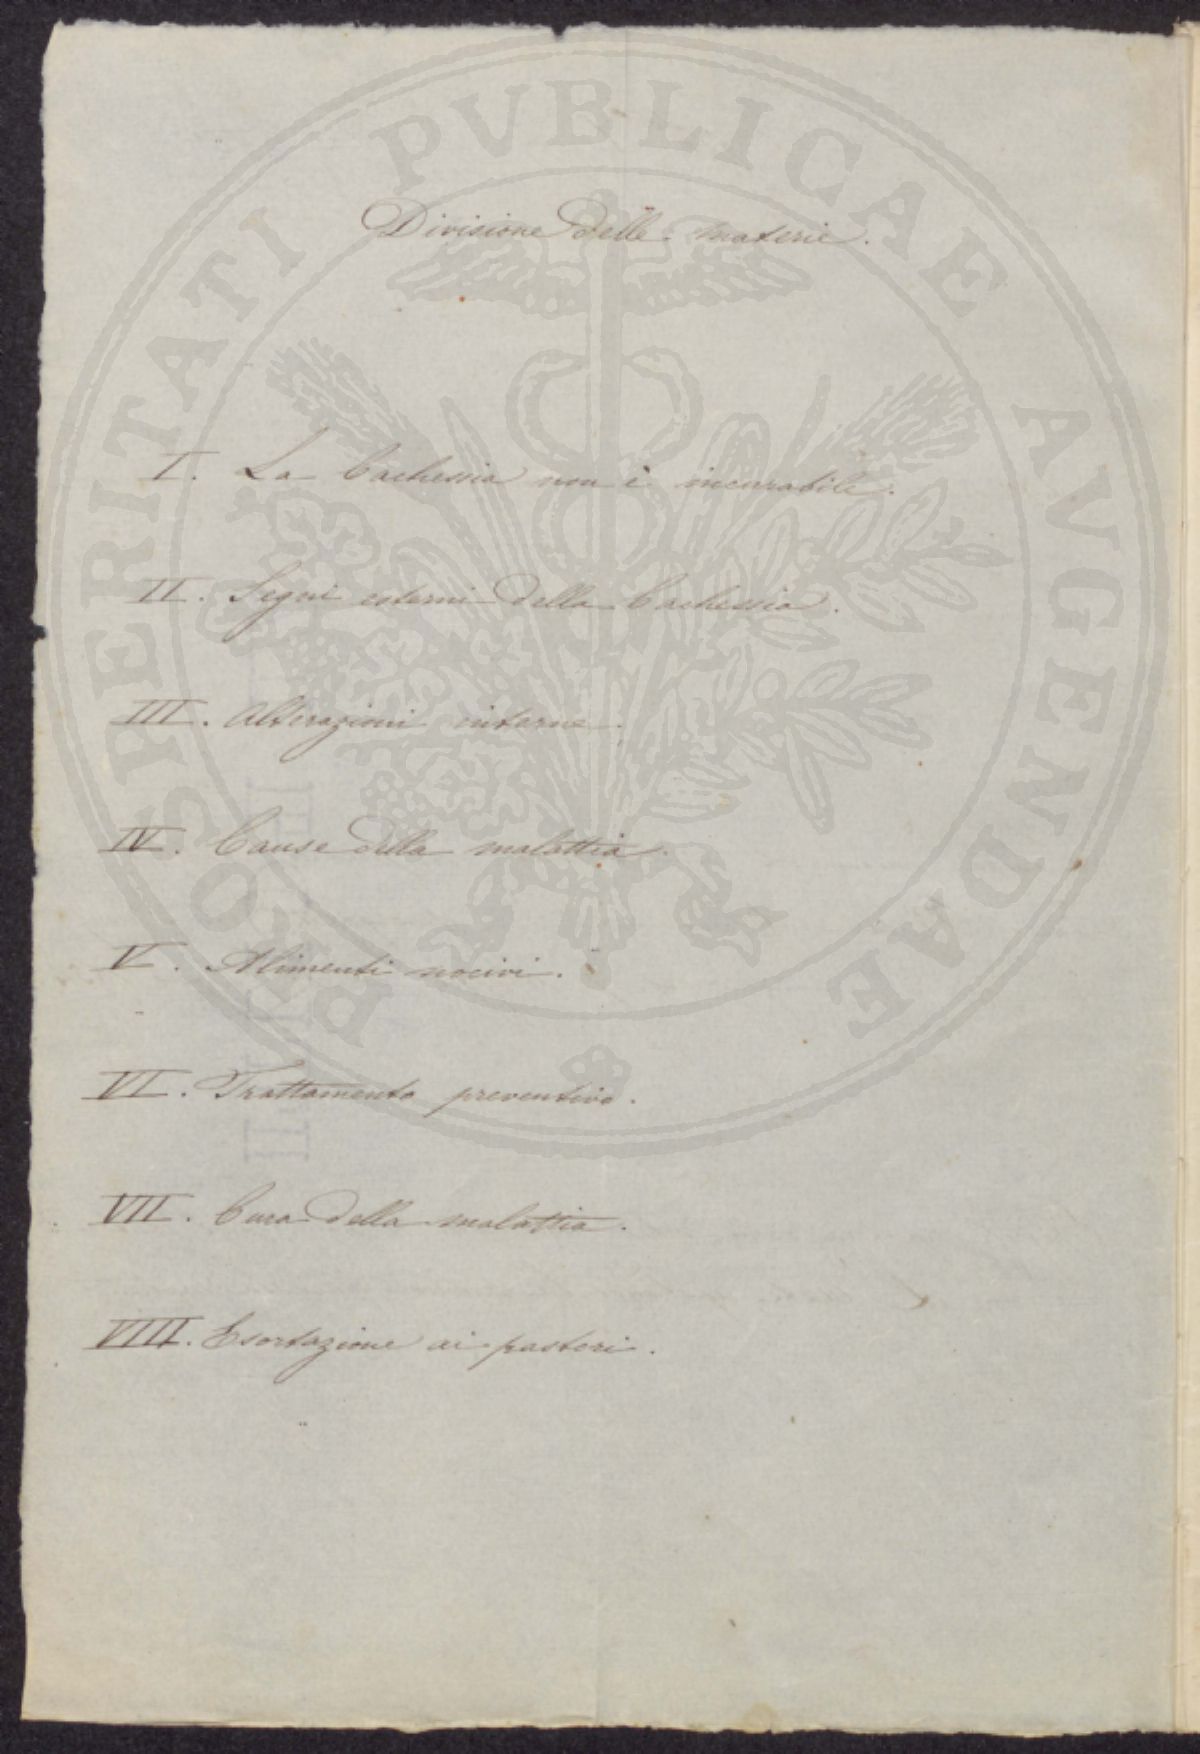 PROSPERITATI PVBLICAE AVGENDAE
Divisione delle materie.
I. La Cachessia non è incurabile.
II. Segni esterni della Cachessia.
III. Alterazioni interne.
IV. Cause della malattia.
V. Alimenti nocivi.
VI. Trattamento preventivo.
VII. Cura della malattia.
VIII. Esortazione ai pastori.